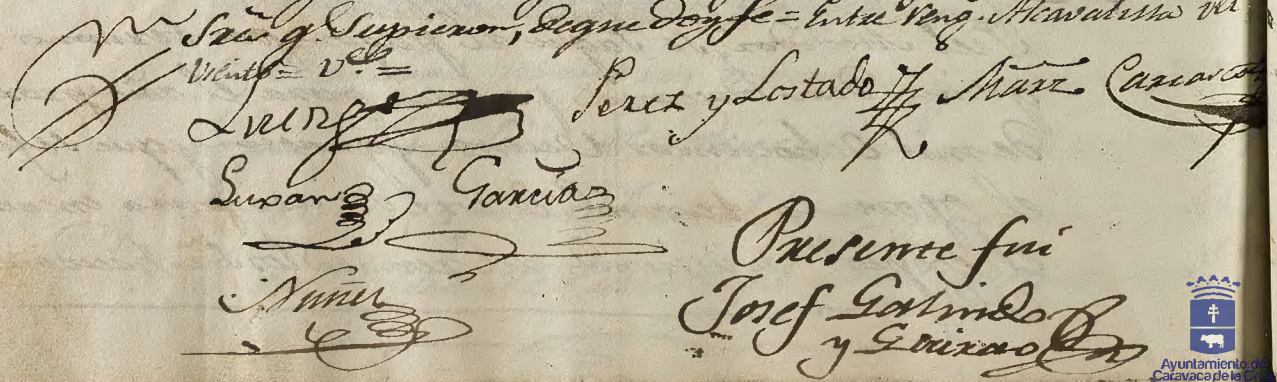 Srãs. q. Supieron, de que doy fe = Entre reng. Alcavalista del
viento = v.e =
Perez y Lostado Marz. Carrasco
Luxan Garcia
Nuñez
Presente fui
Josef Galindo
y Guirao
Ayuntamiento de
Caravaca de la Cruz